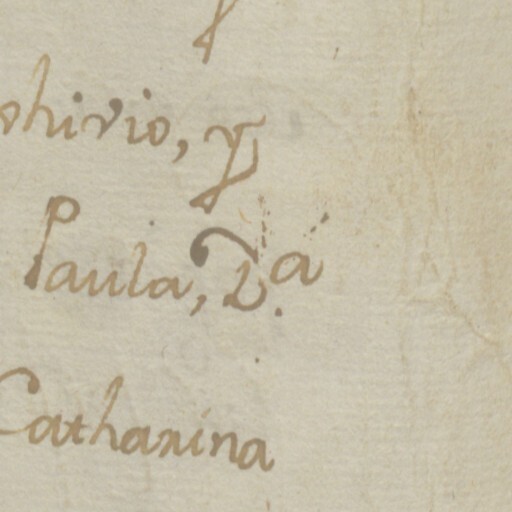 ohivio, y
Paula, D.ª
Catharina